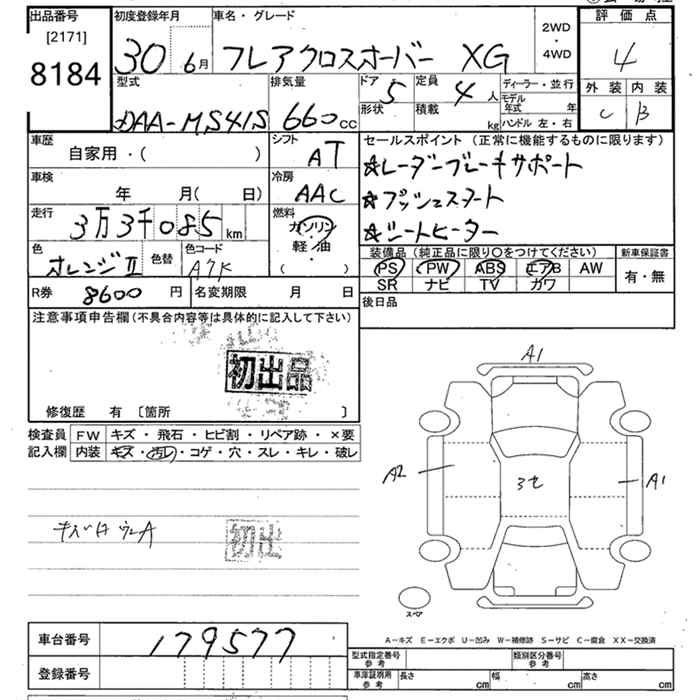 出品番号
[2171]
8184
初度登録年月
30 6月
車名・グレード
フレアクロスオーバー XG
2WD
・
4WD
評価点
4
外装 内装
C B
型式
DAA-MS41S
排気量
660 cc
ドア 5
形状
定員 4 人
積載 kg
ディーラー・並行
モデル年式 年
ハンドル 左・右
車歴
自家用・( )
シフト
AT
車検
年 月( 日)
冷房
AAC
走行
3万3千085 km
燃料
ガソリン
軽油
( )
色
オレンジⅡ
色替
色コード
A7K
R券 8600 円
名変期限 月 日
セールスポイント (正常に機能するものに限ります)
☆レーダーブレーキサポート
☆プッシュスタート
☆シートヒーター
装備品 (純正品に限り○をつけてください)
PS PW ABS エアB AW
SR ナビ TV カワ
新車保証書
有・無
後日品
注意事項申告欄(不具合内容等は具体的に記入して下さい)
初出品
修復歴 有 〔箇所 〕
検査員
記入欄
FW キズ・飛石・ヒビ割・リペア跡・×要
内装 キズ・汚レ・コゲ・穴・スレ・キレ・破レ
初出
A1
A2
A1
スペア
A-キズ E-エクボ U-凹み W-補修跡 S-サビ C-腐食 XX-交換済
車台番号 179577
登録番号
型式指定番号
参考
類別区分番号
参考
車庫証明用
参考
長さ cm 幅 cm 高さ cm